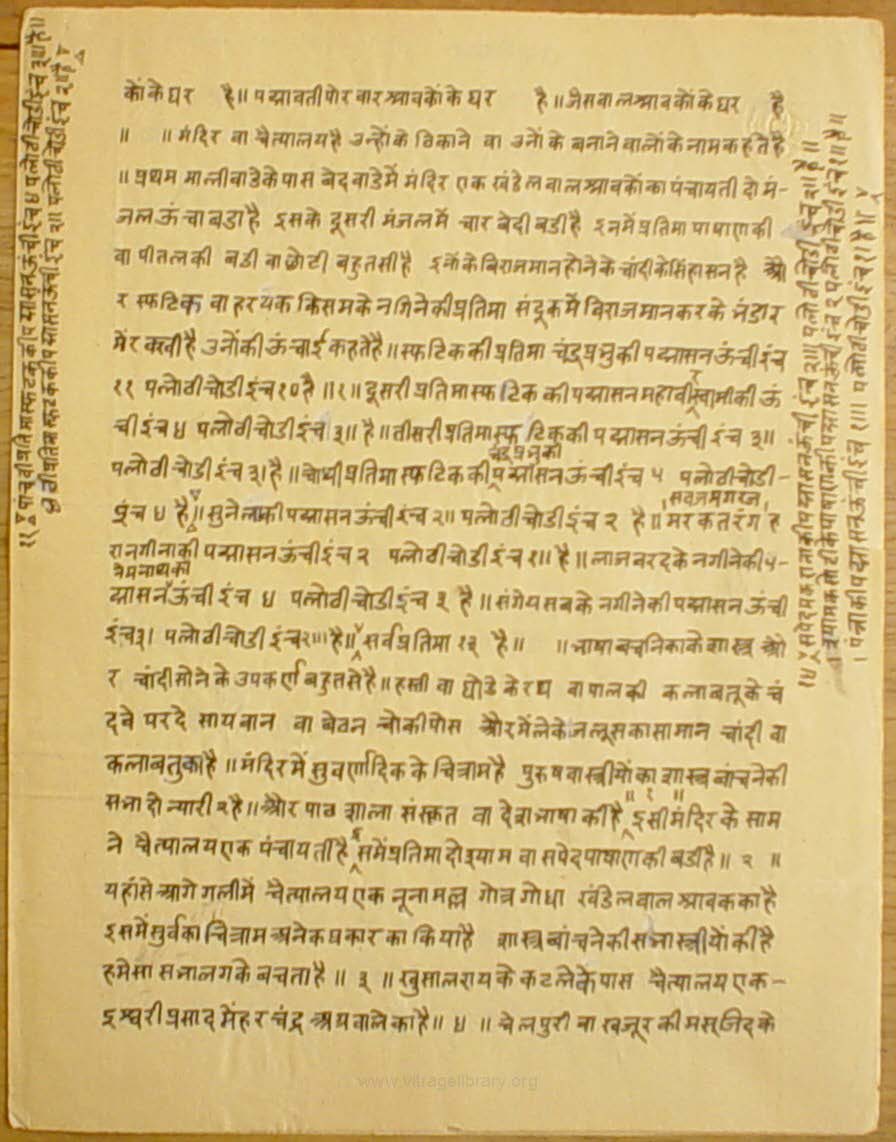 कों के घर है॥ पद्मावतीपोरवार श्रावकों के घर है॥ जैसवाल श्रावकों के घर है
॥ ॥ मंदिर वा चैत्यालय है उन्हों के ठिकाने वा उनों के बनाने वालों के नाम कहते है
॥ प्रथम मालीवाडे के पास वेदवाडे में मंदिर एक खंडेलवाल श्रावकों का पंचायती दो मं-
जल ऊंचा बडा है इसके दूसरी मंजल में चार बेदी बडी है इनमें प्रतिमा पाषाण की
वा पीतल की बडी वा छोटी बहुतसी है इनों के बिराजमान होने के चांदी के सिंहासन है औ
र स्फटिक वा हरयक किसम के नगिने की प्रतिमा संदूक में विराजमान करके भंडार
में रक्खी है उनों की ऊंचाई कहते है॥ स्फटिक की प्रतिमा चंद्रप्रभु की पद्मासन ऊंची इंच
११ पलोठी चोडी इंच १० है॥१॥ दूसरी प्रतिमा स्फटिक की पद्मासन महावीरस्वामी की ऊं
ची इंच ४ पलोठी चोडी इंच ३॥ है॥ तीसरी प्रतिमा स्फटिक की पद्मासन ऊंची इंच ३॥
चंद्रप्रभुकी
पलोठी चोडी इंच ३। है॥ चोथी प्रतिमा स्फटिक की पद्मासन ऊंची इंच ५ पलोठी चोडी-
इंच ४ है॥ सुनेला की पद्मासन ऊंची इंच २॥ पलोठी चोडी इंच २ है॥ मरकत रंग ह
रा नगीना की पद्मासन ऊंची इंच २ पलोठी चोडी इंच १॥ है॥ लाजवरद के नगीने की प-
नेमनाथकी
द्मासन ऊंची इंच ४ पलोठी चोडी इंच ३ है॥ संगेयसब के नगीने की पद्मासन ऊंची
इंच ३। पलोठी चोडी इंच २॥। है॥ सर्व प्रतिमा १३ है॥ ॥ भाषा बचनिका के शास्त्र औ
र चांदी सोने के उपकर्ण बहुत से है॥ हस्ती वा घोडे के रथ वा पालकी कलाबतू के चं
दवे परदे सायवान वा बेठन चोकीपोस और मेले के जलूस का सामान चांदी वा
कलाबतु का है॥ मंदिर में सुवर्णादिक के चित्राम है पुरुष वा स्त्रीयों का शास्त्र बांचने की
सभा दो न्यारी २ है॥ और पाठशाला संस्कृत वा देशभाषा की है ॥१॥ इसी मंदिर के साम
ने चैत्यालय एक पंचायती है इसमें प्रतिमा दो श्याम वा सपेद पाषाण की बडी है॥ २ ॥
यहां से आगे गली में चैत्यालय एक नूनामल्ल गोत्र गोधा खंडेलवाल श्रावक का है
इसमें सुर्व का चित्राम अनेक प्रकार का किया है शास्त्र बांचने की सभा स्त्रीयों की है
हमेसा सभा लग के बचता है॥ ३ ॥ खुसालराय के कटले के पास चैत्यालय एक-
इश्वरीप्रसाद मेंहरचंद्र अग्रवाले का है॥ ४ ॥ चेलपुरी वा खजूर की मस्जिद के
११ पांचवी प्रतिमा स्फटक की पद्मासन ऊंची इंच ४ पलोठी चोडी इंच ३॥ है॥
पलोठी चोडी इंच २॥ है
पलोठी चोडी इंच २॥ है॥
पन्ना की पद्मासन ऊंची इंच १॥। पलोठी चोडी इंच १। है॥